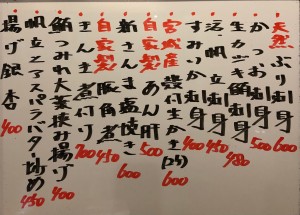 天然ぶり刺身 600
かつお刺身 500
生カツオ 刺身 480
帆立刺身 450
すみいか刺身 400
宮城産 殻付生かき(2ケ) 600
自家製 あん肝 500
新さんま塩焼き 600
自家製 豚角煮 450
きんき煮付け 700
鯛つみれ大葉挟み揚げ 400
帆立とアスパラバター炒め 450
揚げ銀杏 400